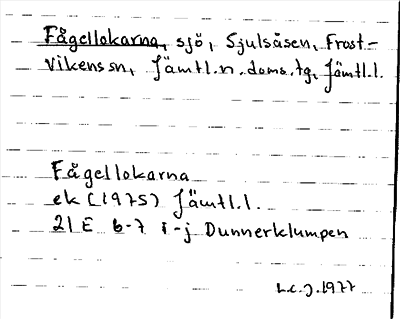 Fågellokarna, sjö, Sjulsåsen, Frost-
Vikens sn, Jämtl.n.doms.tg, Jämtl.l.
Fågellokarna
ek (1975) Jämtl.l.
21 E 6-7 i-j Dunnerklumpen
L.C.J. 1977